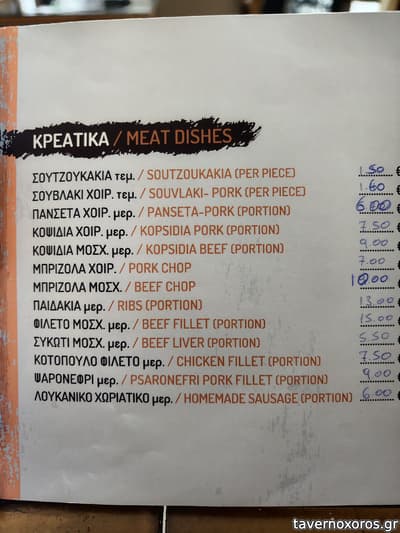 ΚΡΕΑΤΙΚΑ / MEAT DISHES
ΣΟΥΤΖΟΥΚΑΚΙΑ τεμ. / SOUTZOUKAKIA (PER PIECE) 1.50 €
ΣΟΥΒΛΑΚΙ ΧΟΙΡ. τεμ. / SOUVLAKI- PORK (PER PIECE) 1.60 €
ΠΑΝΣΕΤΑ ΧΟΙΡ. μερ. / PANSETA-PORK (PORTION) 6.00 €
ΚΟΨΙΔΙΑ ΧΟΙΡ. μερ. / KOPSIDIA PORK (PORTION) 7.50 €
ΚΟΨΙΔΙΑ ΜΟΣΧ. μερ. / KOPSIDIA BEEF (PORTION) 9.00 €
ΜΠΡΙΖΟΛΑ ΧΟΙΡ. / PORK CHOP 7.00 €
ΜΠΡΙΖΟΛΑ ΜΟΣΧ. / BEEF CHOP 10.00 €
ΠΑΙΔΑΚΙΑ μερ. / RIBS (PORTION) 13.00 €
ΦΙΛΕΤΟ ΜΟΣΧ. μερ. / BEEF FILLET (PORTION) 15.00 €
ΣΥΚΩΤΙ ΜΟΣΧ. μερ. / BEEF LIVER (PORTION) 5.50 €
ΚΟΤΟΠΟΥΛΟ ΦΙΛΕΤΟ μερ. / CHICKEN FILLET (PORTION) 7.50 €
ΨΑΡΟΝΕΦΡΙ μερ. / PSARONEFRI PORK FILLET (PORTION) 9.00 €
ΛΟΥΚΑΝΙΚΟ ΧΩΡΙΑΤΙΚΟ μερ. / HOMEMADE SAUSAGE (PORTION) 6.00 €
tavernoxoros.gr